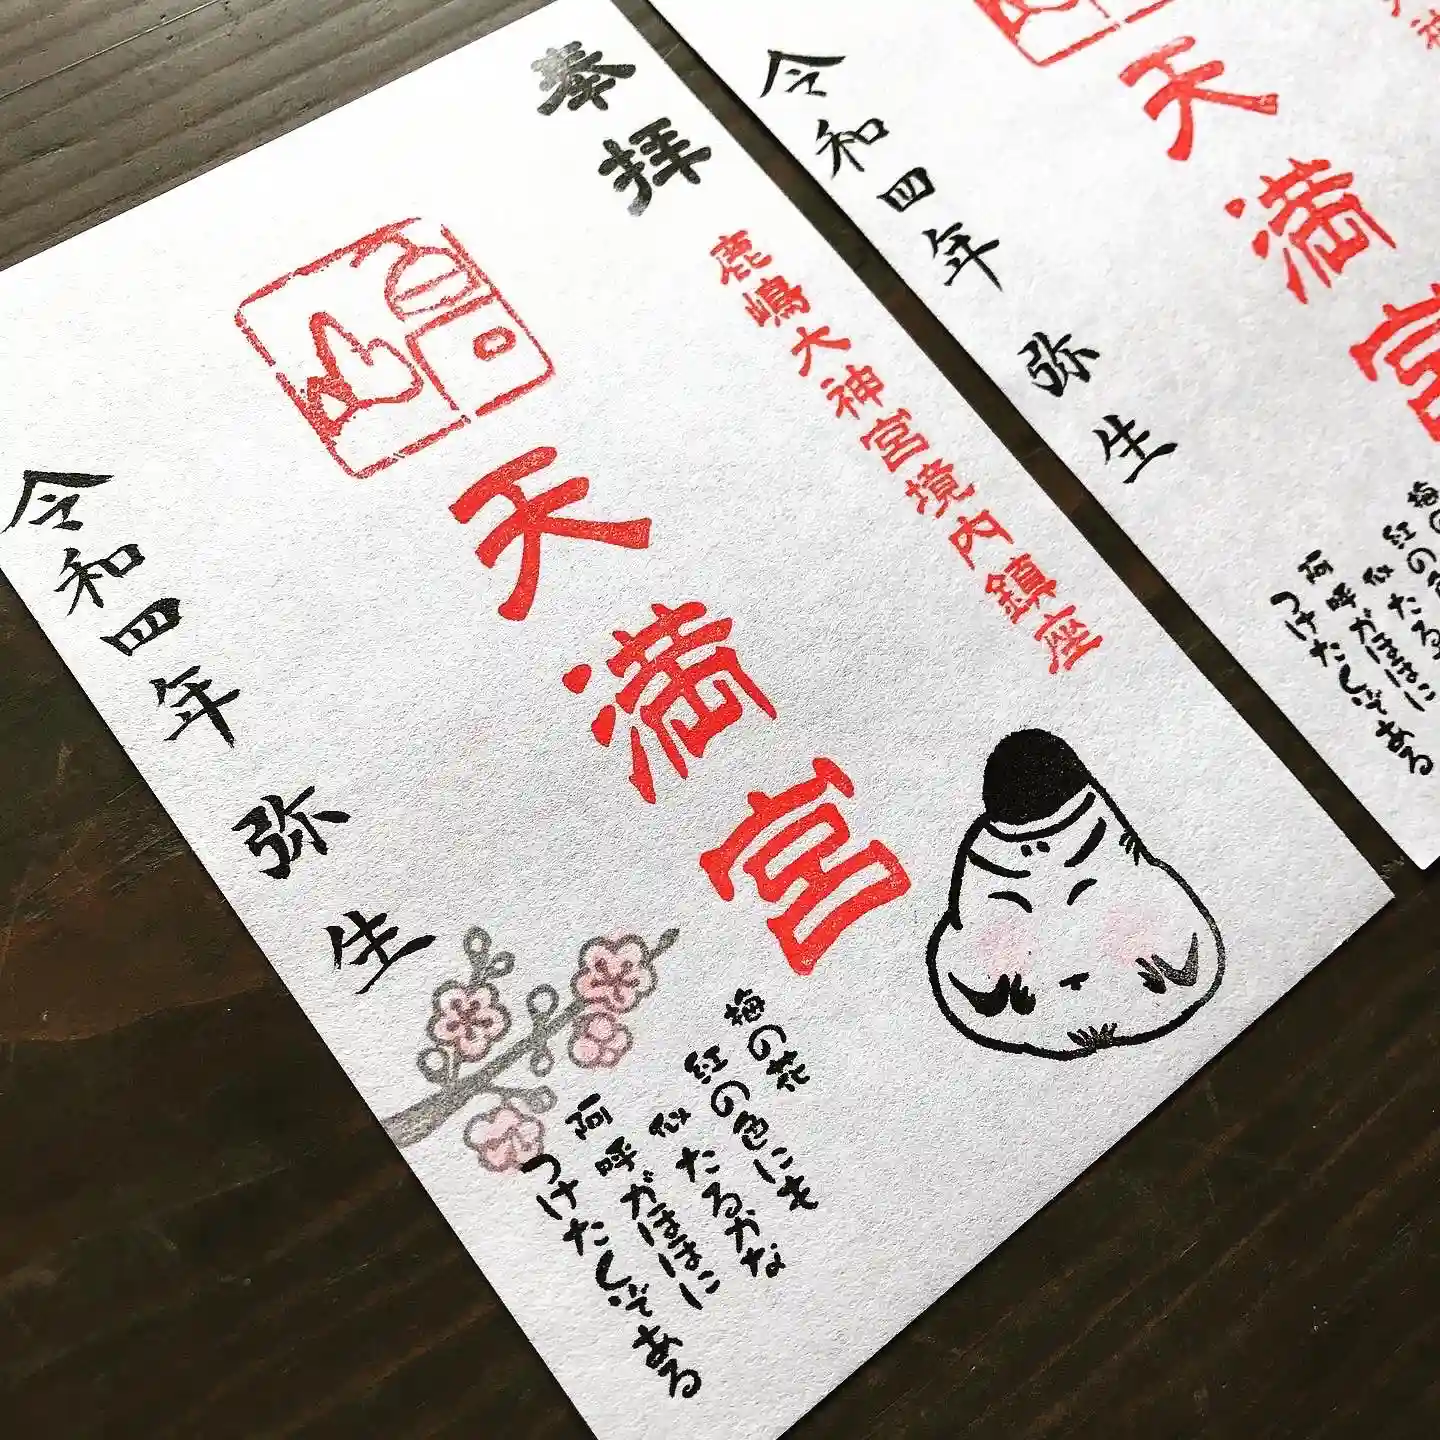 奉拝
鹿嶋大神宮境内鎮座
天満宮
梅の花
紅の色にも
似たるかな
阿呼がほほに
つけたくぞある
令和四年 弥生
天満宮
梅の
紅の色
似たる
阿呼がほほに
つけたくぞある
令和四年 弥生